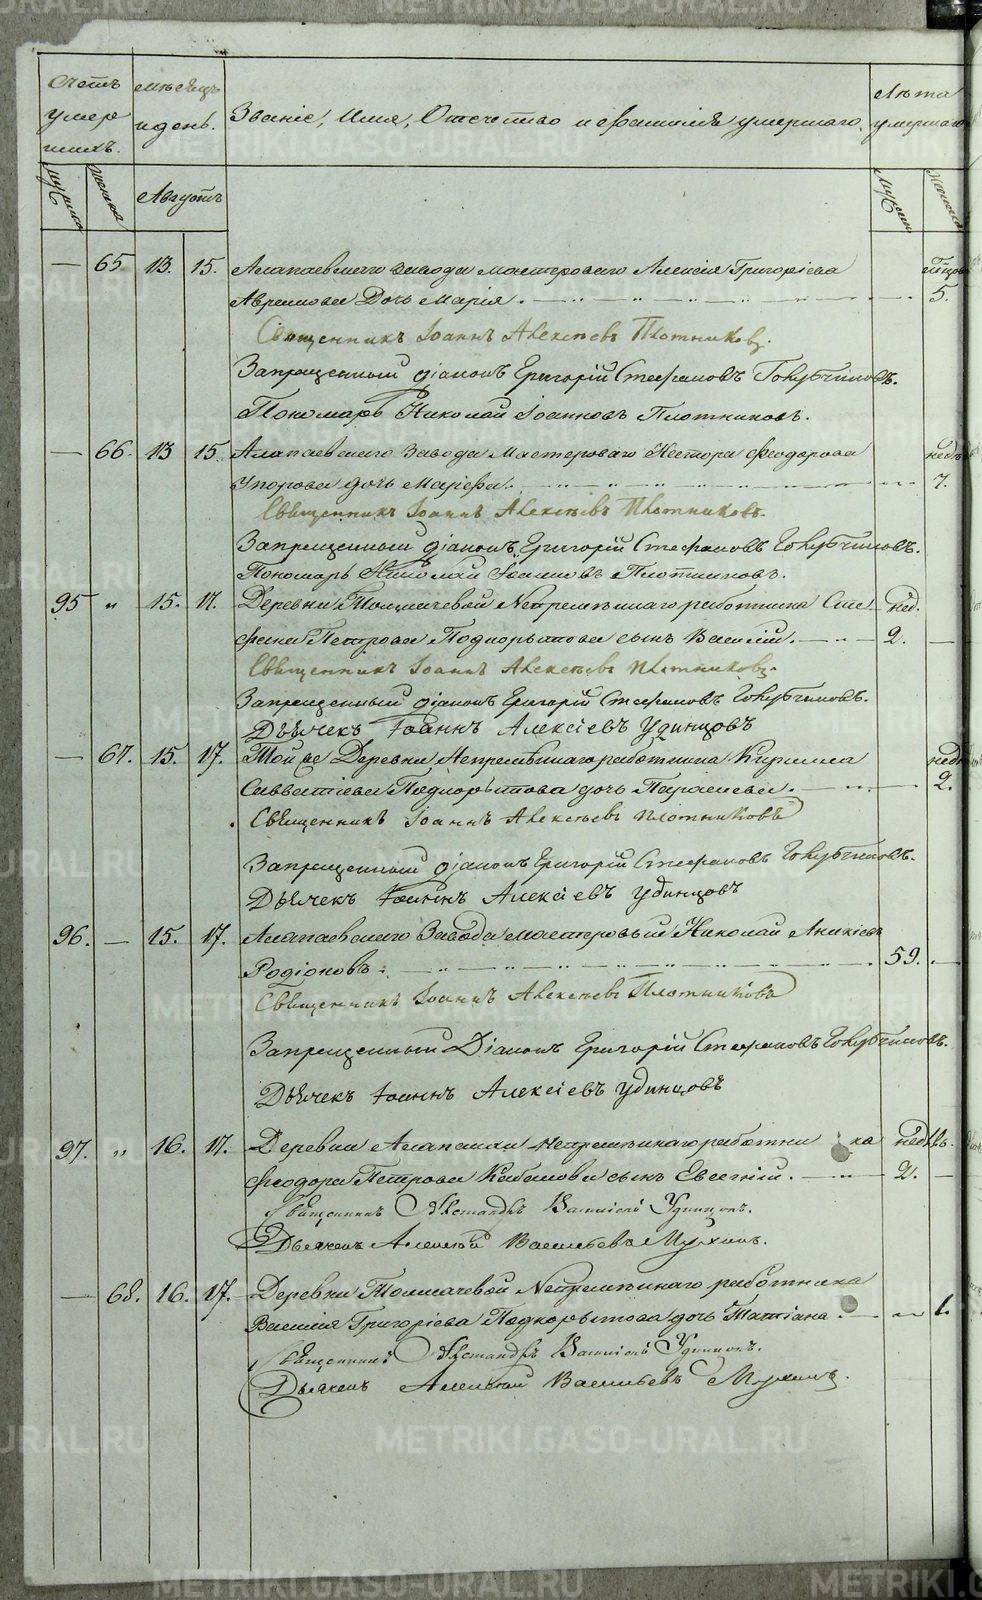 Счетъ умер шихъ.
Мѣсяцъ и день.
Званіе, Имя, Отечество и Фамилія умершаго.
Лѣта умершаго
мужска женска Августъ
— 65 13. 15. Алапаевскаго завода мастероваго Алексія Григоріева
Абрамова Дочь Марія. 5.
Священникъ Іоаннъ Алексѣевъ Плотниковъ.
Запрещенный діаконъ Григорій Стефановъ Голубчиковъ.
Пономарь Николай Іоанновъ Плотниковъ.
— 66. 13 15. Алапаевскаго Завода Мастероваго Нестора Феодорова
Упорова дочь Марѳа. 7.
Священникъ Іоаннъ Алексѣевъ Плотниковъ.
Запрещенный діаконъ Григорій Стефановъ Голубчиковъ.
Пономарь Николай Іоанновъ Плотниковъ.
95 „ 15. 17. Деревни Толмачевой Непремѣннаго работника Сте нед.
фана Петрова Подкорытова сынъ Василій. 2. —
Священникъ Іоаннъ Алексѣевъ Плотниковъ.
Запрещенный діаконъ Григорій Стефановъ Голубчиковъ.
Дьячекъ Іоаннъ Алексіевъ Удинцовъ
— 67. 15. 17. Той же Деревни Непремѣннаго работника Кирилла
Савватіева Подкорытова дочь Параскева. 2.
Священникъ Іоаннъ Алексѣевъ Плотниковъ
Запрещенный діаконъ Григорій Стефановъ Голубчиковъ.
Дьячекъ Іоаннъ Алексіевъ Удинцовъ
96. — 15. 17. Алапаевскаго Завода мастеровый Николай Аникіевъ
Родіоновъ. 59. —
Священникъ Іоаннъ Алексѣевъ Плотниковъ
Запрещенный Діаконъ Григорій Стефановъ Голубчиковъ.
Дьячекъ Іоаннъ Алексіевъ Удинцовъ
97. „ 16. 17. Деревни Алапаихи непремѣннаго работни ка
Феодора Петрова Кабакова сынъ Евгеній. 2. —
Священникъ Александръ Василіевъ Удинцовъ.
Дьячекъ Алексѣй Васильевъ Мухинъ.
— 68. 16. 17. Деревни Толмачевой Непремѣннаго работника
Василія Григоріева Подкорытова дочь Татіана. 1.
Священникъ Александръ Василіевъ Удинцовъ.
Дьячекъ Алексѣй Васильевъ Мухинъ.
METRIKI.GASO-URAL.RU